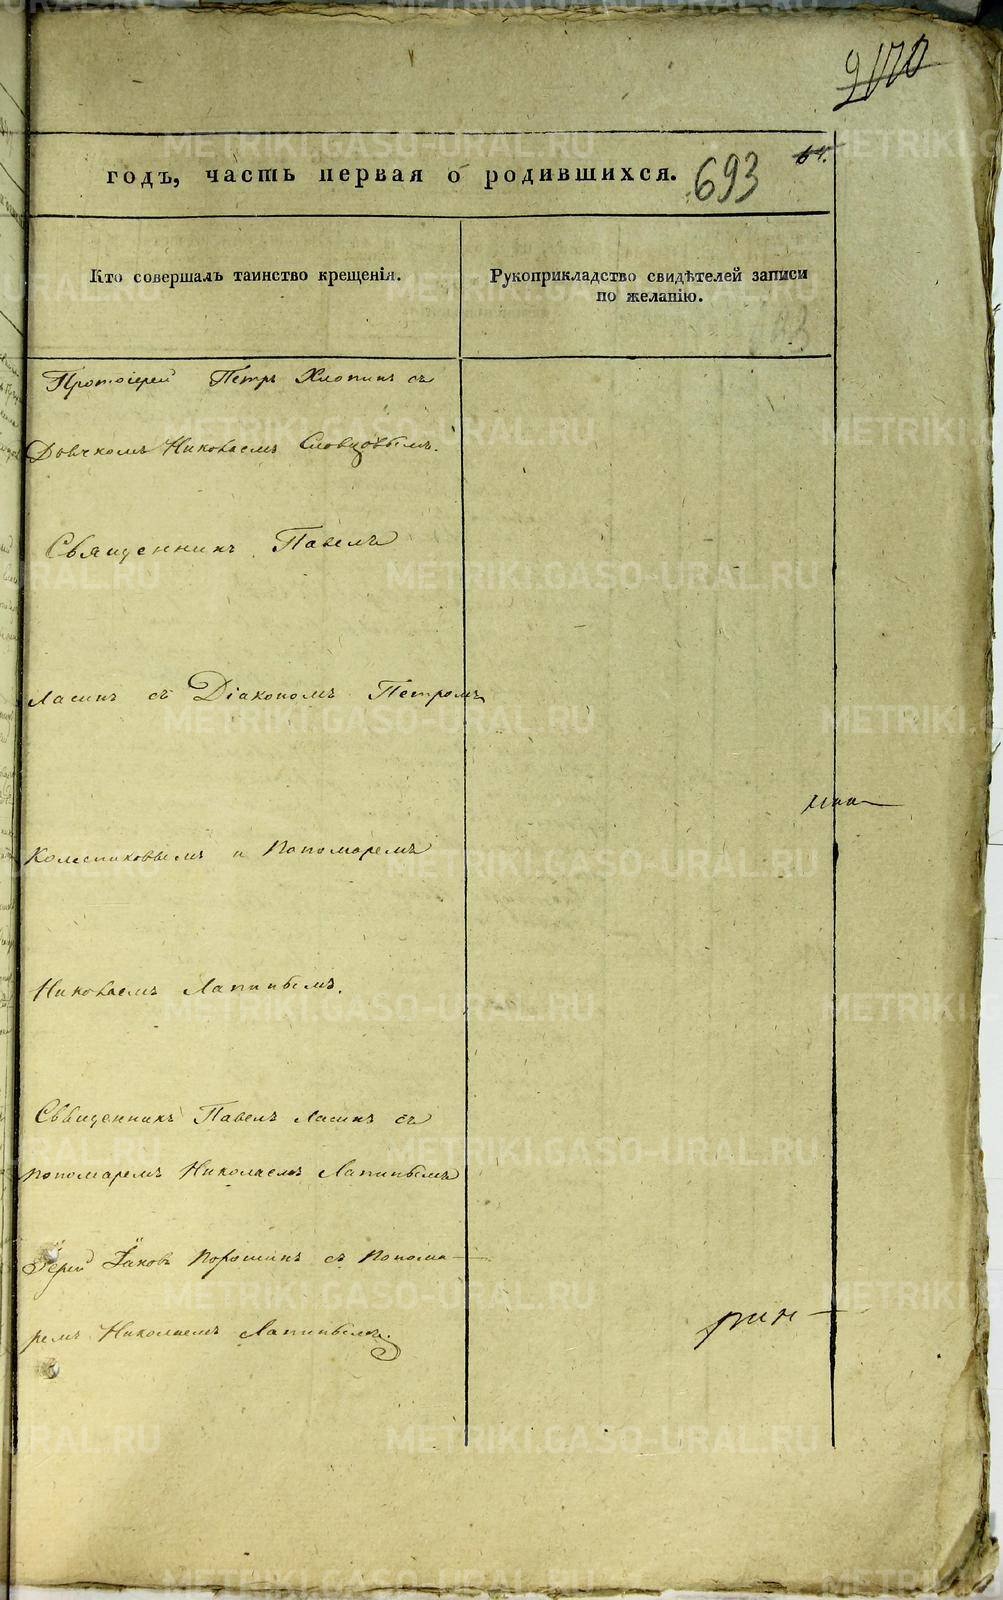 годъ, часть первая о родившихся. 693
Кто совершалъ таинство крещенія.
Рукоприкладство свидѣтелей записи
по желанію.
Протоіерей Петръ Хлопинъ съ
Дьячкомъ Николаемъ Словцовымъ.
Священникъ Павелъ
Ласинъ съ Діакономъ Петромъ
Колесниковымъ и Пономаремъ
Николаемъ Лапинымъ.
Священникъ Павелъ Ласинъ съ
пономаремъ Николаемъ Лапинымъ
Іерей Іаковъ Порошинъ съ Понома-
ремъ Николаемъ Лапинымъ.
METRIKI.GASO-URAL.RU